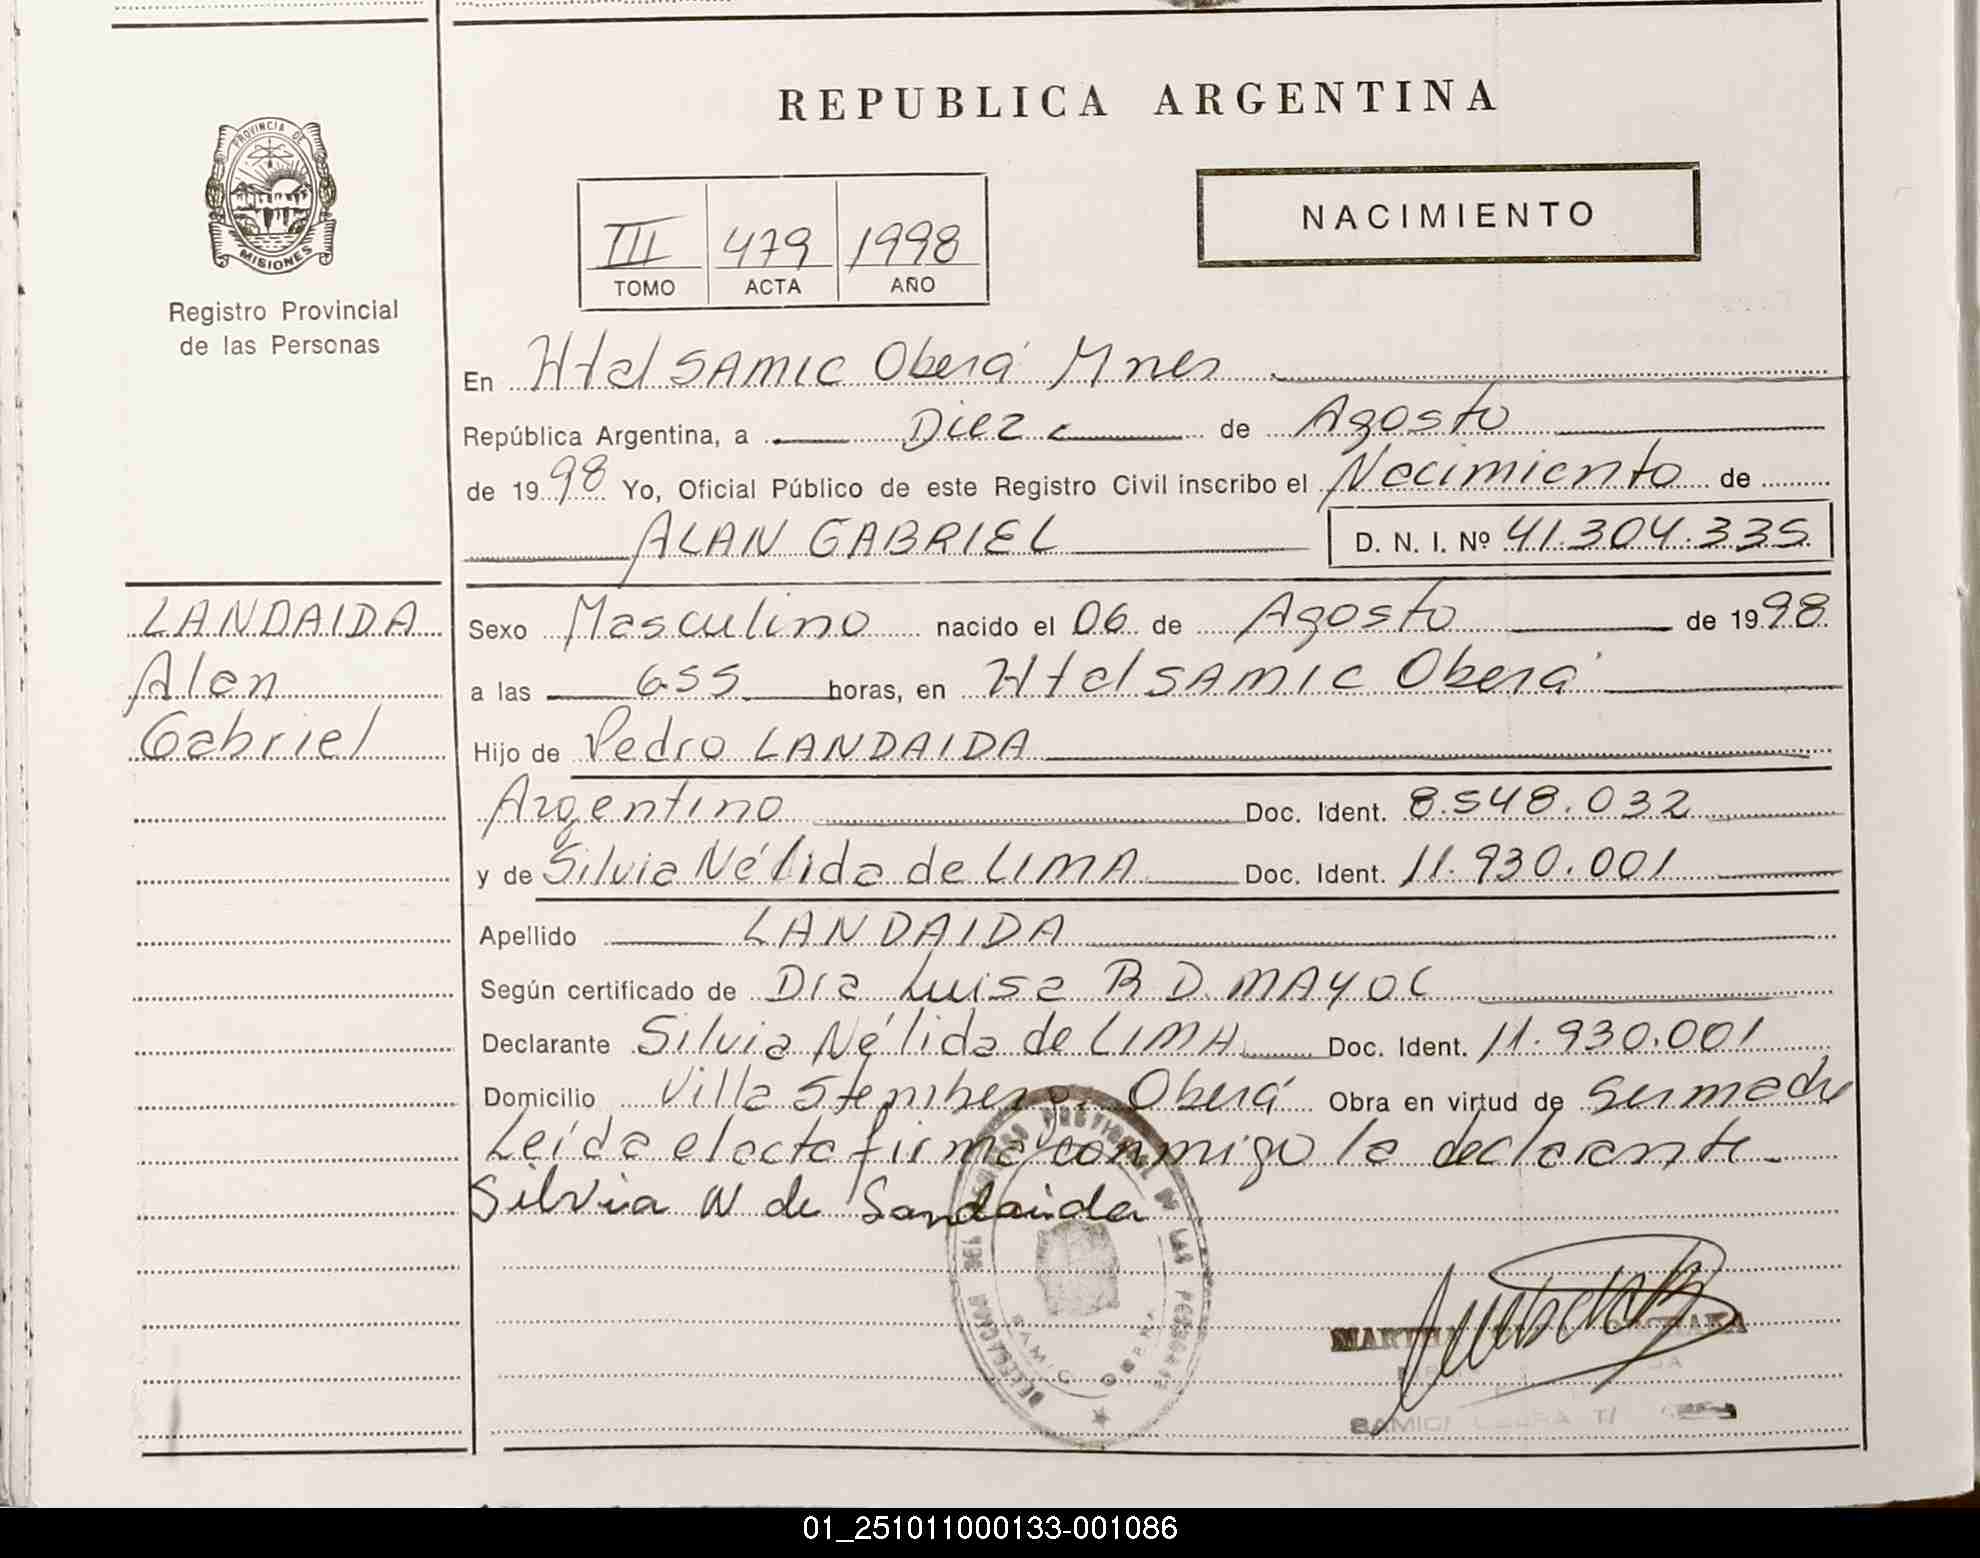 PROVINCIA DE
MISIONES
Registro Provincial
de las Personas
REPUBLICA ARGENTINA
III 479 1998
TOMO ACTA AÑO
NACIMIENTO
En Htal SAMIC Oberá Mnes
República Argentina, a Diez de Agosto
de 1998 Yo, Oficial Público de este Registro Civil inscribo el Nacimiento de
ALAN GABRIEL D. N. I. Nº 41.304.335
LANDAIDA
Alan
Gabriel
Sexo Masculino nacido el 06 de Agosto de 1998
a las 6.55 horas, en Htal SAMIC Oberá
Hijo de Pedro LANDAIDA
Argentino Doc. Ident. 8.548.032
y de Silvia Nélida de LIMA Doc. Ident. 11.930.001
Apellido LANDAIDA
Según certificado de Dra Luisa R D MAYOL
Declarante Silvia Nélida de LIMA Doc. Ident. 11.930.001
Domicilio Villa Stemberg. Oberá Obra en virtud de ser madre
Leída el acta firma conmigo la declarante
Silvia N de Landaida
DELEGACION DEL PROVINCIAL DE LAS PERSONAS
SAMIC OBERA
01_251011000133-001086